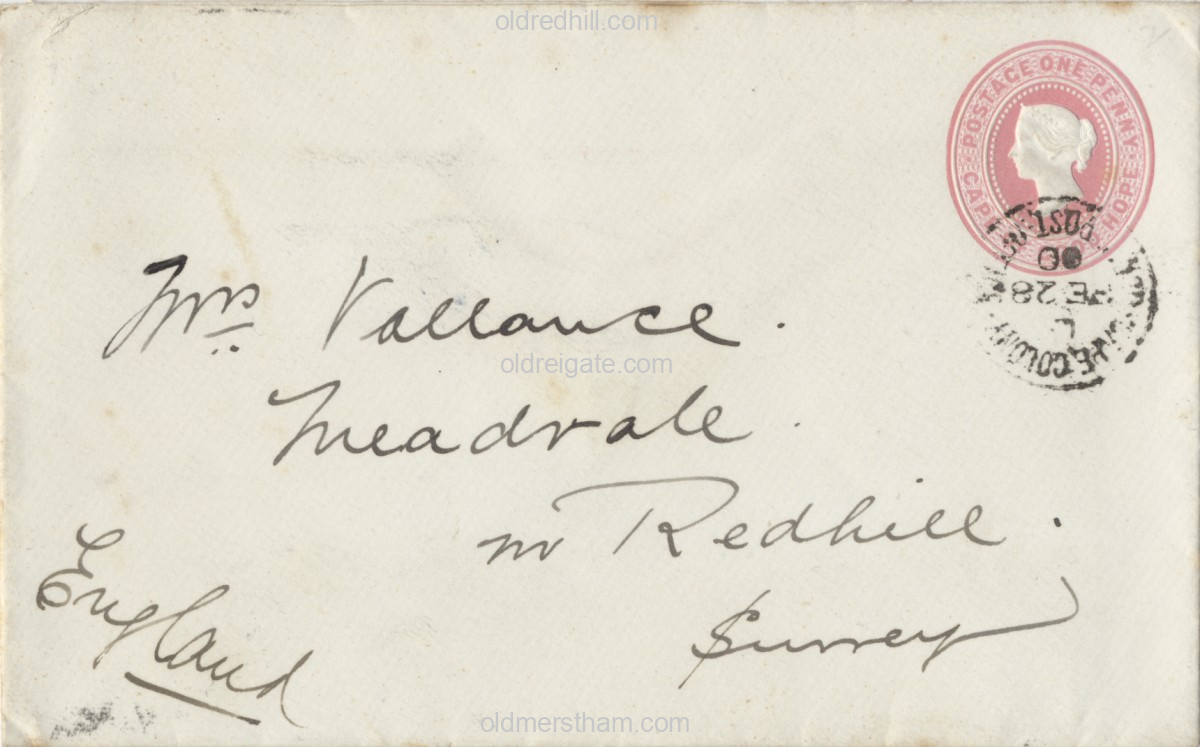 oldredhill.com
CAPE POSTAGE ONE PENNY HOPE
POST
00
FE 28
COLONY
Mrs Vallance.
oldreigate.com
Meadvale.
nr Redhill.
Surrey
England
oldmerstham.com